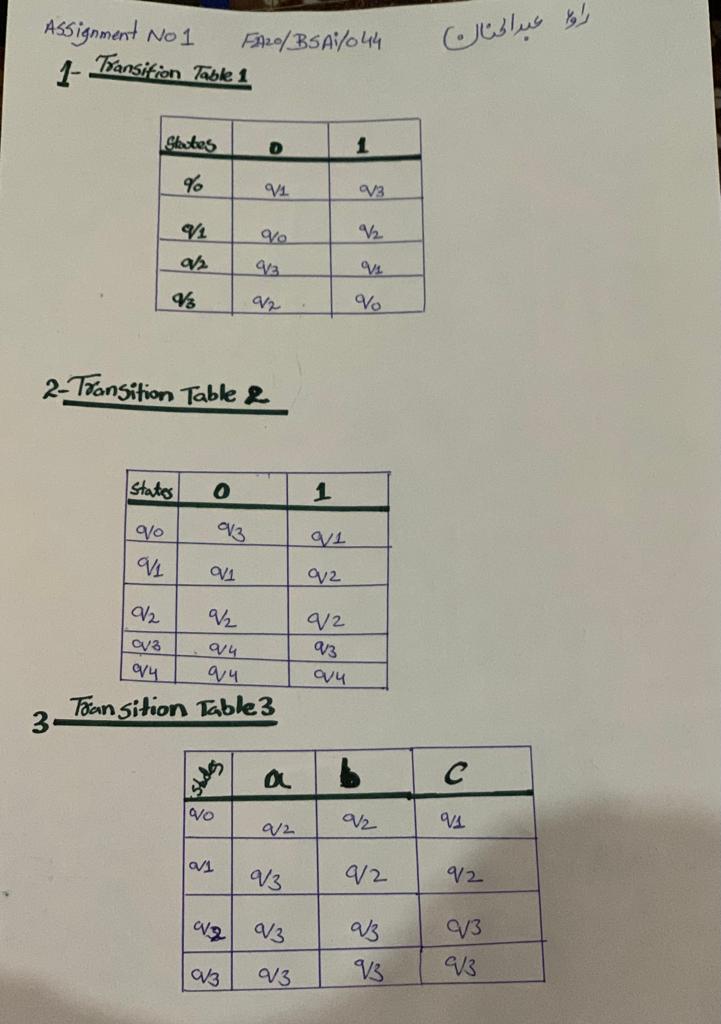 Assignment No 1 FA20/BSAi/044 راؤ عبدالحنان
1- Transition Table 1
States 0 1
q0 q1 q3
q1 q0 q2
q2 q3 q1
q3 q2 q0
2- Transition Table 2
States 0 1
q0 q3 q1
q1 q1 q2
q2 q2 q2
q3 q4 q3
q4 q4 q4
3 Transition Table 3
States a b c
q0 q2 q2 q1
q1 q3 q2 q2
q2 q3 q3 q3
q3 q3 q3 q3